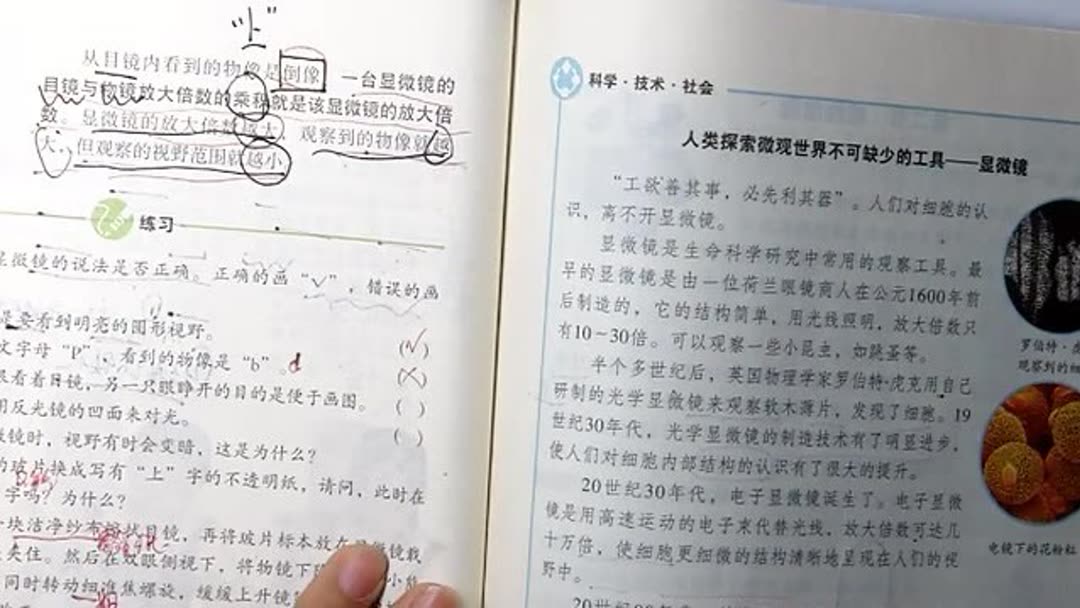 “上”
从目镜内看到的物像是倒像 一台显微镜的
目镜与物镜放大倍数的乘积就是该显微镜的放大倍
数。显微镜的放大倍数越大 观察到的物像就越
大,但观察的视野范围就越小
练习
显微镜的说法是否正确。正确的画“√”,错误的画
是要看到明亮的圆形视野。 (√)
文字母“P”,看到的物像是“b”。d (×)
眼看着目镜,另一只眼睁开的目的是便于画图。 ( )
用反光镜的凹面来对光。 ( )
微镜时,视野有时会变暗,这是为什么?
的玻片换成写有“上”字的不透明纸,请问,此时在
字吗?为什么?
一块洁净纱布擦拭目镜,再将玻片标本放在显微镜载
夹住。然后在双眼侧视下,将物镜下
同时转动细准焦螺旋,缓缓上升镜
科学·技术·社会
人类探索微观世界不可缺少的工具——显微镜
“工欲善其事,必先利其器”。人们对细胞的认
识,离不开显微镜。
显微镜是生命科学研究中常用的观察工具。最
早的显微镜是由一位荷兰眼镜商人在公元1600年前
后制造的,它的结构简单,用光线照明,放大倍数只
有10~30倍。可以观察一些小昆虫,如跳蚤等。
半个多世纪后,英国物理学家罗伯特·虎克用自己
研制的光学显微镜来观察软木薄片,发现了细胞。19
世纪30年代,光学显微镜的制造技术有了明显进步,
使人们对细胞内部结构的认识有了很大的提升。
20世纪30年代,电子显微镜诞生了。电子显微
镜是用高速运动的电子束代替光线,放大倍数可达几
十万倍,使细胞更细微的结构清晰地呈现在人们的视
野中。
罗伯特·虎
观察到的细
电镜下的花粉粒